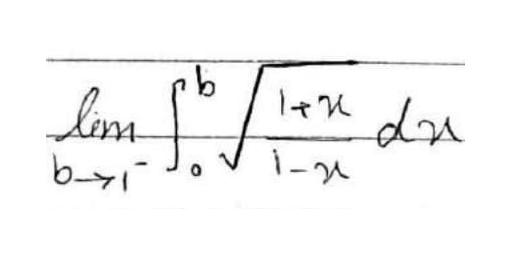 lim_{b→1⁻} ∫₀ᵇ √((1+x)/(1-x)) dx